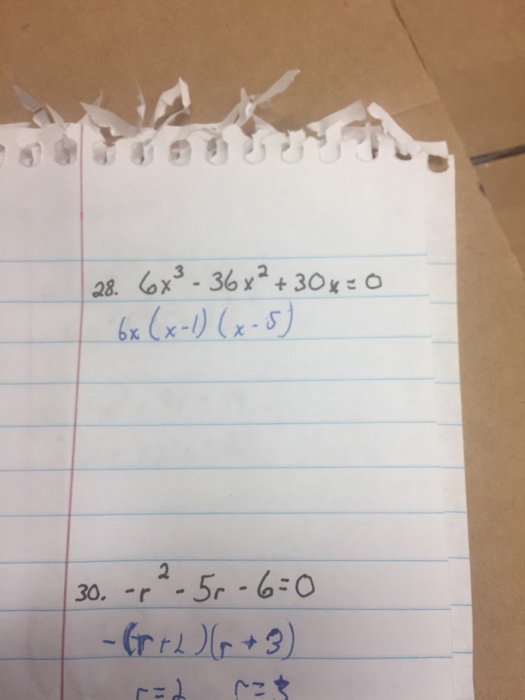 28. 6x³ - 36x² + 30x = 0
6x (x-1) (x-5)
30. -r² - 5r - 6 = 0
-(r+2)(r+3)
r=2 r=3